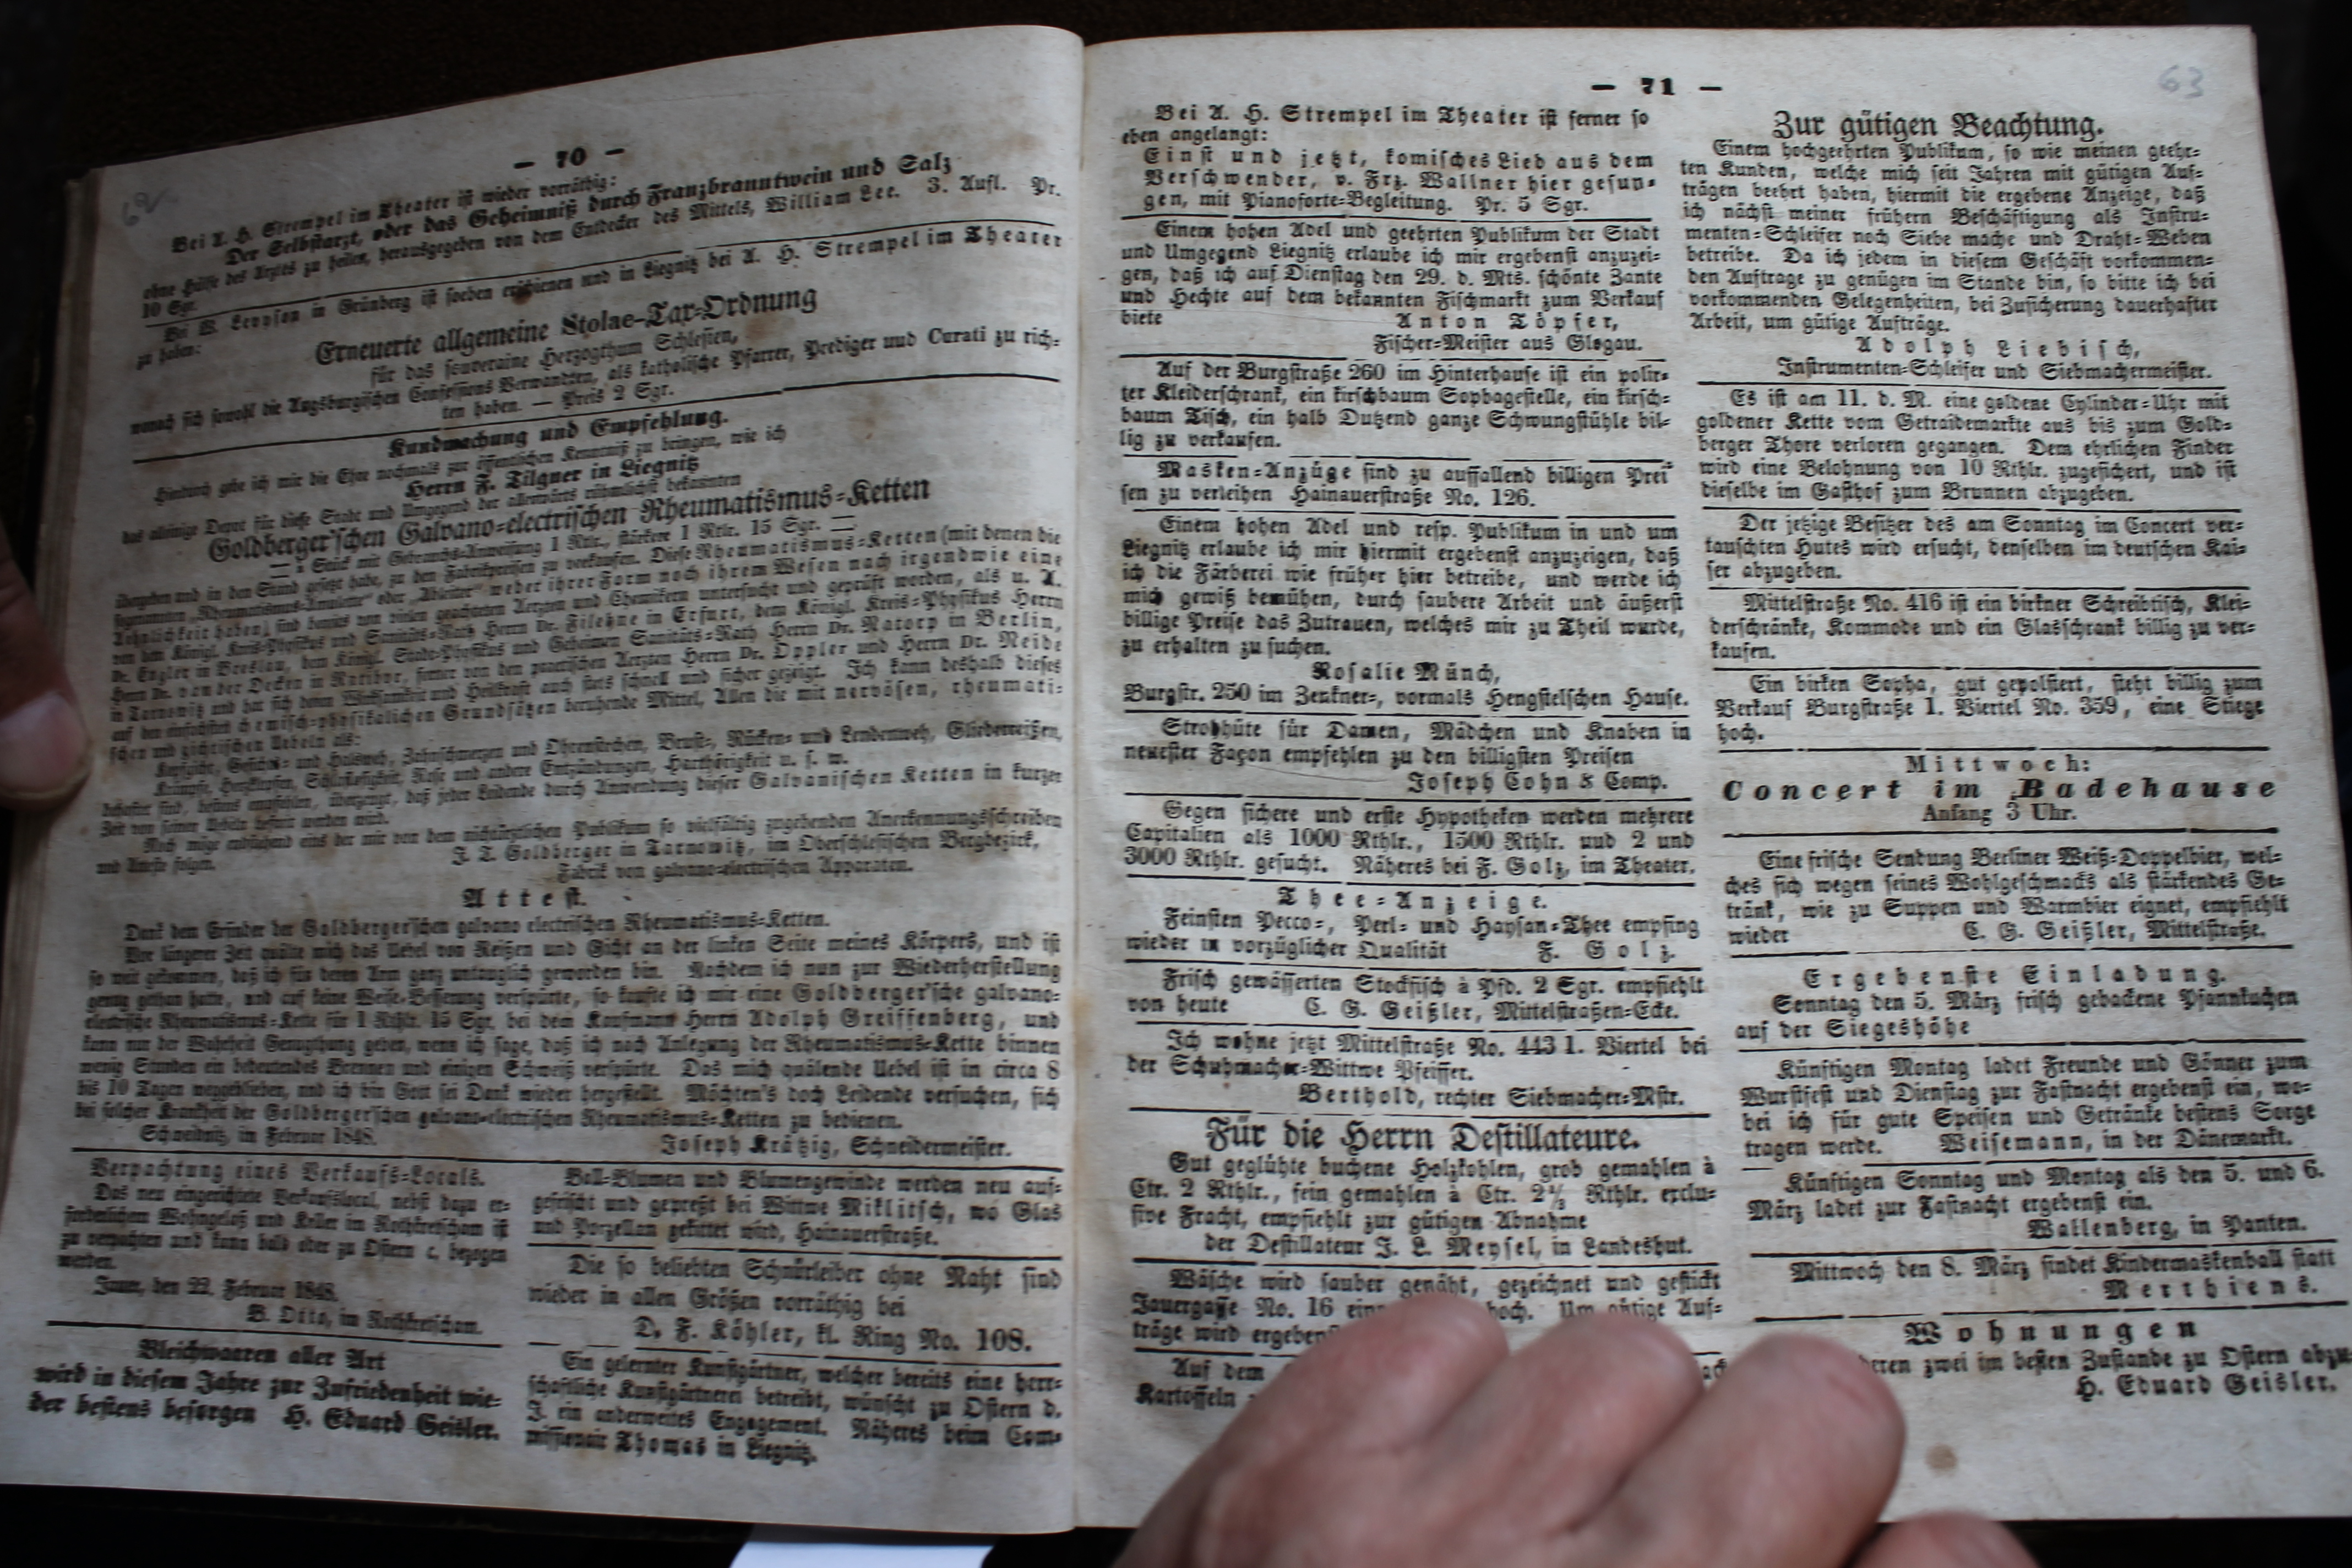 — 70 —
Bei A. H. Strempel im Theater ist wieder vorräthig:
Der Selbstarzt, oder das Geheimniß durch Franzbranntwein und Salz
ohne Hülfe des Arztes zu heilen, herausgegeben von dem Entdecker des Mittels, William Lee. 3. Aufl. Pr.
10 Sgr.
Bei W. Levysohn in Grünberg ist soeben erschienen und in Liegnitz bei A. H. Strempel im Theater
zu haben:
Erneuerte allgemeine Stolae-Tax-Ordnung
für das souveraine Herzogthum Schlesien,
wonach sich sowohl die Augsburgischen Confessions Verwandten, als katholische Pfarrer, Prediger und Curati zu rich-
ten haben. — Preis 2 Sgr.
Kundmachung und Empfehlung.
Hiedurch gebe ich mir die Ehre nochmals zur öffentlichen Kenntniß zu bringen, wie ich
Herrn F. Tilgner in Liegnitz
das alleinige Depot für diese Stadt und Umgegend der allerwärts rühmlichst bekannten
Goldberger'schen Galvano-electrischen Rheumatismus-Ketten
— à Stück mit Gebrauchs-Anweisung 1 Rtlr., stärkere 1 Rtlr. 15 Sgr. —
übergeben und in den Stand gesetzt habe, zu den Fabrikpreisen zu verkaufen. Diese Rheumatismus-Ketten (mit denen die
sogenannten „Rheumatismus-Amulette" oder „Ableiter" weder ihrer Form noch ihrem Wesen nach irgendwie eine
Aehnlichkeit haben), sind bereits von vielen geachteten Aerzten und Chemikern untersucht und geprüft worden, als u. A.
von dem Königl. Kreis-Physikus und Sanitäts-Rath Herrn Dr. Filehne in Erfurt, dem Königl. Kreis-Physikus Herrn
Dr. Engler in Breslau, dem Königl. Stadt-Physikus und Geheimen Sanitäts-Rath Herrn Dr. Natorp in Berlin,
Herrn Dr. van der Decken in Ratibor, ferner von den practischen Aerzten Herrn Dr. Oppler und Herrn Dr. Neide
in Tarnowitz und hat sich deren Wirksamkeit und Heilkraft auch stets schnell und sicher gezeigt. Ich kann deshalb dieses
auf den einfachsten chemisch-physikalischen Grundsätzen beruhende Mittel, Allen die mit nervösen, rheumati-
schen und gichtischen Uebeln als:
Kopfgicht, Gesichts- und Halsweh, Zahnschmerzen und Ohrenstechen, Brust-, Rücken- und Lendenweh, Gliederreißen,
Krämpfe, Herzklopfen, Schlaflosigkeit, Rose und andere Entzündungen, Harthörigkeit u. s. w.
behaftet sind, bestens empfehlen, überzeugt, daß jeder Leidende durch Anwendung dieser Galvanischen Ketten in kurzer
Zeit von seinen Uebeln befreit werden wird.
Noch möge nachstehend eins der mir von dem nichtärztlichen Publikum so vielfältig zugehenden Anerkennungsschreiben
und Atteste folgen.
J. T. Goldberger in Tarnowitz, im Oberschlesischen Bergbezirk,
Fabrik von galvano-electrischen Apparaten.
Attest.
Dank dem Erfinder der Goldberger'schen galvano electrischen Rheumatismus-Ketten.
Vor längerer Zeit quälte mich das Uebel von Reißen und Gicht an der linken Seite meines Körpers, und ist
so weit gekommen, daß ich für deren Arm ganz untauglich geworden bin. Nachdem ich nun zur Wiederherstellung
genug gethan hatte, und auf keine Weise Besserung verspürte, so kaufte ich mir eine Goldberger'sche galvano-
electrische Rheumatismus-Kette für 1 Rthlr. 15 Sgr. bei dem Kaufmann Herrn Adolph Greiffenberg, und
kann nur der Wahrheit Genugthung geben, wenn ich sage, daß ich nach Anlegung der Rheumatismus-Kette binnen
wenig Stunden ein bedeutendes Brennen und einigen Schweiß verspürte. Das mich quälende Uebel ist in circa 8
bis 10 Tagen weggeblieben, und ich bin Gott sei Dank wieder hergestellt. Möchten's doch Leidende versuchen, sich
bei solcher Krankheit der Goldberger'schen galvano-electrischen Rheumatismus-Ketten zu bedienen.
Schweidnitz, im Februar 1848.
Joseph Krätzig, Schneidermeister.
Verpachtung eines Verkaufs-Locals.
Das neu eingerichtete Verkaufslocal, nebst dazu er-
forderlichem Wohngelaß und Keller im Rothkretscham ist
zu verpachten und kann bald oder zu Ostern c. bezogen
werden.
Jauer, den 22. Februar 1848.
B. Otto, im Rothkretscham.
Bleichwaaren aller Art
wird in diesem Jahre zur Zufriedenheit wie-
der bestens besorgen H. Eduard Geisler.
Ball-Blumen und Blumengewinde werden neu auf-
gefrischt und gepreßt bei Wittwe Miklitsch, wo Glas
und Porzellan gekittet wird, Hainauerstraße.
Die so beliebten Schnürleiber ohne Naht sind
wieder in allen Größen vorräthig bei
D. F. Köhler, kl. Ring No. 108.
Ein gelernter Kunstgärtner, welcher bereits eine herr-
schaftliche Kunstgärtnerei betreibt, wünscht zu Ostern d.
J. ein anderweites Engagement. Näheres beim Com-
missionair Thomas in Liegnitz.
— 71 —
63
Bei A. H. Strempel im Theater ist ferner so
eben angelangt:
Einst und jetzt, komisches Lied aus dem
Verschwender, v. Frz. Wallner hier gesun-
gen, mit Pianoforte-Begleitung. Pr. 5 Sgr.
Einem hohen Adel und geehrten Publikum der Stadt
und Umgegend Liegnitz erlaube ich mir ergebenst anzuzei-
gen, daß ich auf Dienstag den 29. d. Mts. schönte Zante
und Hechte auf dem bekannten Fischmarkt zum Verkauf
biete Anton Töpfer,
Fischer-Meister aus Glogau.
Auf der Burgstraße 260 im Hinterhause ist ein polir-
ter Kleiderschrank, ein kirschbaum Sophagestelle, ein kirsch-
baum Tisch, ein halb Dutzend ganze Schwungstühle bil-
lig zu verkaufen.
Masken-Anzüge sind zu auffallend billigen Prei-
sen zu verleihen Hainauerstraße No. 126.
Einem hohen Adel und resp. Publikum in und um
Liegnitz erlaube ich mir hiermit ergebenst anzuzeigen, daß
ich die Färberei wie früher hier betreibe, und werde ich
mich gewiß bemühen, durch saubere Arbeit und äußerst
billige Preise das Zutrauen, welches mir zu Theil wurde,
zu erhalten zu suchen.
Rosalie Münch,
Burgstr. 250 im Zenkner-, vormals Hengstelschen Hause.
Strohhüte für Damen, Mädchen und Knaben in
neuester Façon empfehlen zu den billigsten Preisen
Joseph Cohn & Comp.
Gegen sichere und erste Hypotheken werden mehrere
Capitalien als 1000 Rthlr., 1500 Rthlr. und 2 und
3000 Rthlr. gesucht. Näheres bei F. Golz, im Theater.
Thee-Anzeige.
Feinsten Pecco-, Perl- und Haysan-Thee empfing
wieder in vorzüglicher Qualität F. Golz.
Frisch gewässerten Stockfisch à Pfd. 2 Sgr. empfiehlt
von heute C. G. Geißler, Mittelstraßen-Ecke.
Ich wohne jetzt Mittelstraße No. 443 1. Viertel bei
der Schuhmacher-Wittwe Pfeiffer.
Berthold, rechter Siebmacher-Mstr.
Für die Herrn Destillateure.
Gut geglühte buchene Holzkohlen, grob gemahlen à
Ctr. 2 Rthlr., fein gemahlen à Ctr. 2⅓ Rthlr. exclu-
sive Fracht, empfiehlt zur gütigen Abnahme
der Destillateur J. L. Meysel, in Landeshut.
Wäsche wird sauber genäht, gezeichnet und gestickt
Jauergasse No. 16 hoch. Um gütige Auf-
träge wird
Auf dem
Kartoffeln
Zur gütigen Beachtung.
Einem hochgeehrten Publikum, so wie meinen geehr-
ten Kunden, welche mich seit Jahren mit gütigen Auf-
trägen beehrt haben, hiermit die ergebene Anzeige, daß
ich nächst meiner frühern Beschäftigung als Instru-
menten-Schleifer noch Siebe mache und Draht-Weben
betreibe. Da ich jedem in diesem Geschäft vorkommen-
den Auftrage zu genügen im Stande bin, so bitte ich bei
vorkommenden Gelegenheiten, bei Zusicherung dauerhafter
Arbeit, um gütige Aufträge.
Adolph Liebisch,
Instrumenten-Schleifer und Siebmachermeister.
Es ist am 11. d. M. eine goldene Cylinder-Uhr mit
goldener Kette vom Getraidemarkte aus bis zum Gold-
berger Thore verloren gegangen. Dem ehrlichen Finder
wird eine Belohnung von 10 Rthlr. zugesichert, und ist
dieselbe im Gasthof zum Brunnen abzugeben.
Der jetzige Besitzer des am Sonntag im Concert ver-
tauschten Hutes wird ersucht, denselben im deutschen Kai-
ser abzugeben.
Mittelstraße No. 416 ist ein birkner Schreibtisch, Klei-
derschränke, Kommode und ein Glasschrank billig zu ver-
kaufen.
Ein birken Sopha, gut gepolstert, steht billig zum
Verkauf Burgstraße 1. Viertel No. 359, eine Stiege
hoch.
Mittwoch:
Concert im Badehause
Anfang 3 Uhr.
Eine frische Sendung Berliner Weiß-Doppelbier, wel-
ches sich wegen seines Wohlgeschmacks als stärkendes Ge-
tränk, wie zu Suppen und Warmbier eignet, empfiehlt
wieder C. G. Geißler, Mittelstraße.
Ergebenste Einladung.
Sonntag den 5. März frisch gebackene Pfannkuchen
auf der Siegeshöhe
Künftigen Montag ladet Freunde und Gönner zum
Wurstfest und Dienstag zur Fastnacht ergebenst ein, wo-
bei ich für gute Speisen und Getränke bestens Sorge
tragen werde. Weisemann, in der Dänemarkt.
Künftigen Sonntag und Montag als den 5. und 6.
März ladet zur Fastnacht ergebenst ein.
Wallenberg, in Panten.
Mittwoch den 8. März findet Kindermaskenball statt
Merthiens.
Wohnungen
deren zwei im besten Zustande zu Ostern abzu-
H. Eduard Geisler.